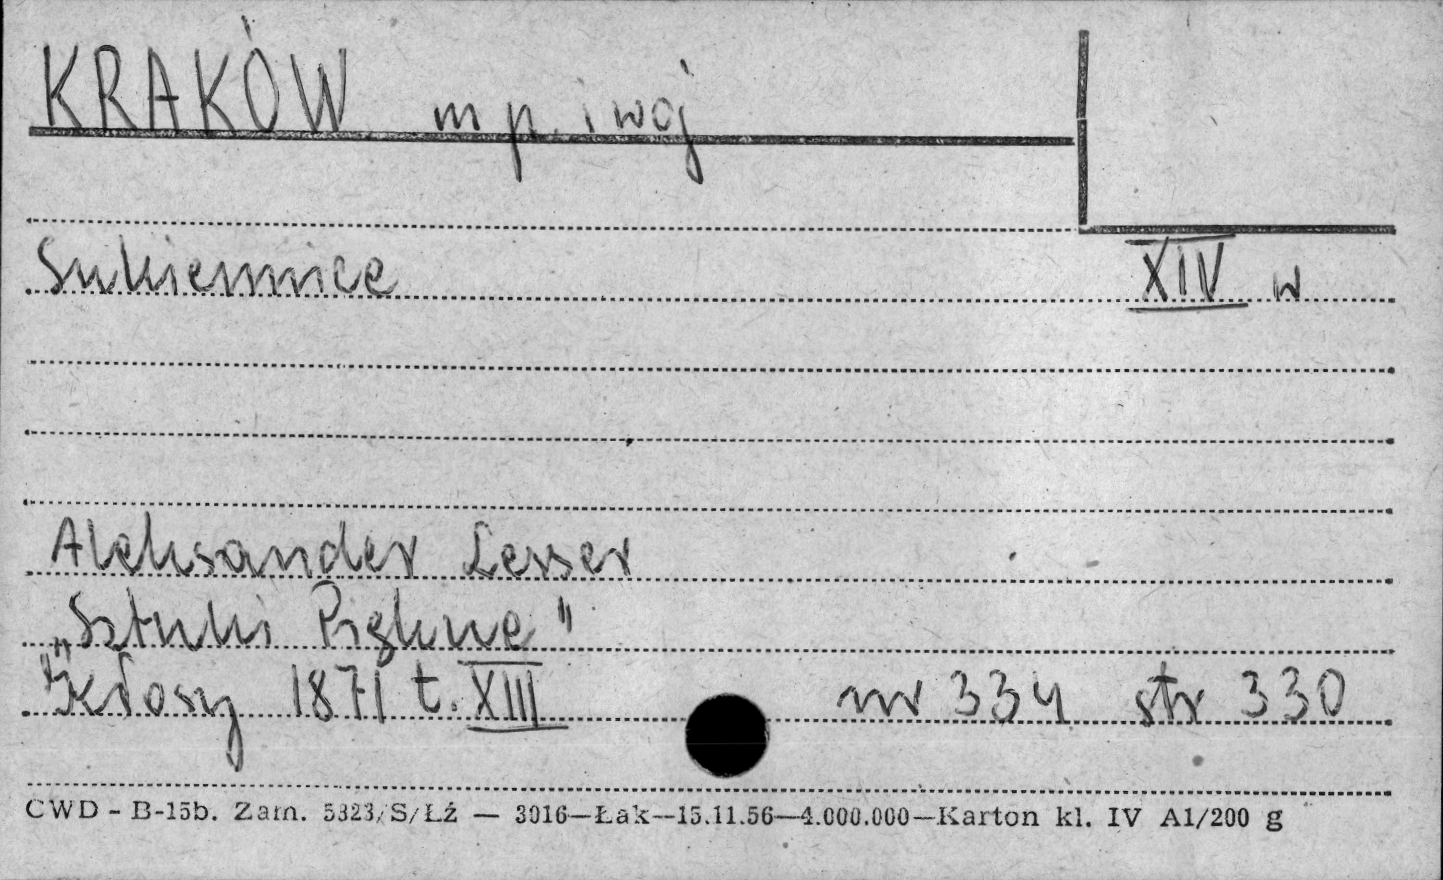 KRAKÓW m p. i woj
Sukiennice XIV w
Aleksander Lesser
„Sztuki Piękne"
"Kłosy 1871 t. XIII nr 334 str 330
CWD - B-15b. Zam. 5323/S/Łź — 3016—Łak—15.11.56—4.000.000—Karton kl. IV A1/200 g